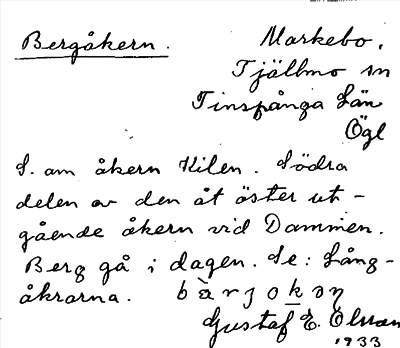 Bergåkern.
Markebo.
Tjällmo sn
Finspånga län
Ögl
S. om åkern Kilen. Södra
delen av den åt öster ut-
gående åkern vid Dammen.
Berg gå i dagen. Se: Lång-
åkrarna. bàrjokəṇ
Gustaf E. Olsson
1933